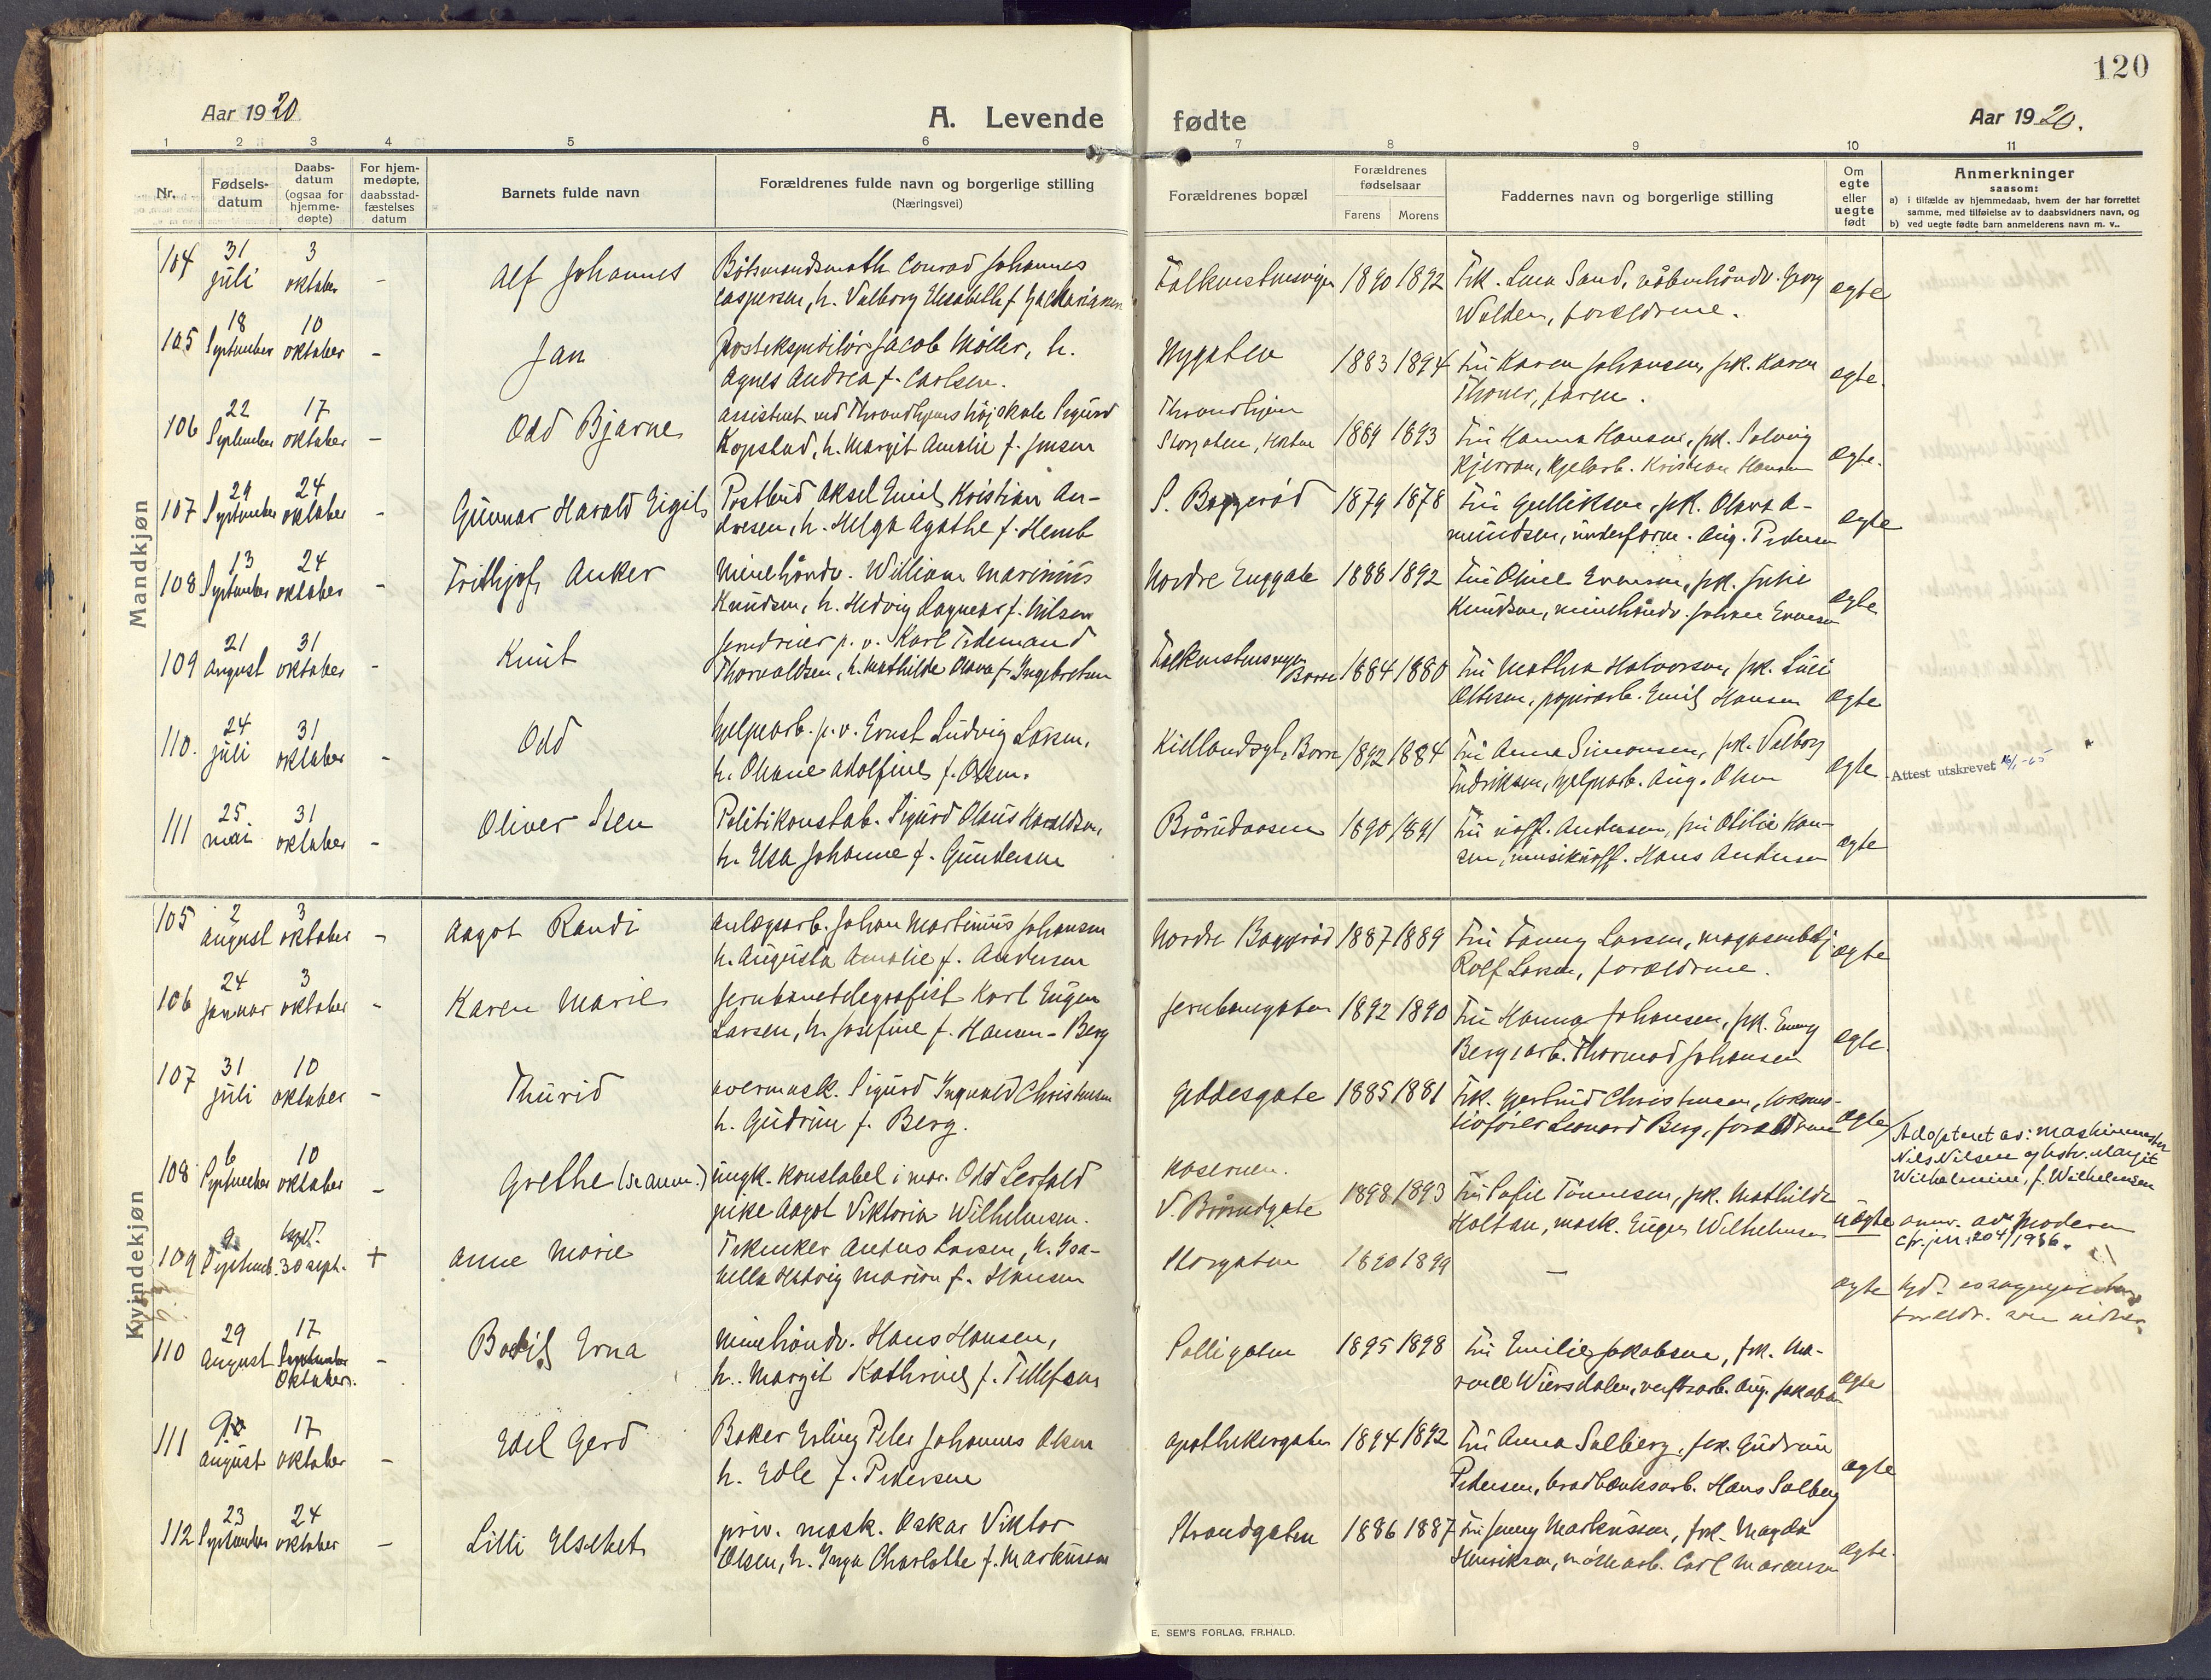 120
Aar 1920
A. Levende
fødte
Aar 1920.
1 2 3 4 5 6 7 8 9 10 11
Nr.
Fødsels-
datum
Daabs-
datum
(ogsaa for
hjemme-
døpte)
For hjem-
medøpte,
daabsstad-
fæstelses
datum
Barnets fulde navn
Forældrenes fulde navn og borgerlige stilling
(Næringsvei)
Forældrenes bopæl
Forældrenes
fødselsaar
Farens Morens
Faddernes navn og borgerlige stilling
Om
egte
eller
uegte
født
Anmerkninger
saasom:
a) i tilfælde av hjemmedaab, hvem der har forrettet
samme, med tilføielse av to daabsvidners navn, og
b) ved uegte fødte barn anmelderens navn m. v..
Mandkjøn
104 31 juli 3 oktober - Alf Johannes
Conrad Johannes
Caspersen, h. Valborg Elisabeth f. Zachariasen
1890 1892
Frk. Lina Sand, Georg
Walden, forældrene.
egte
105 18 September 10 oktober - Jan
Postekspeditør Jacob Møller, h.
Agnes Andrea f. Carlsen.
Nygaten 1883 1894
Fru Karen Johansen, frk. Karen
faren.
egte.
106 22 September 17 oktober - Odd Bjarne
assistent ved Throndhjems højskole Sigurd
Kopstad, h. Margit Amalie f. Jensen
Throndhjem
Storgaten, Horten 1889 1893
Fru Hanna Hansen, frk. Solveig
Kristian Hansen
egte.
107 29 September 24 oktober - Gunnar Harald Eigil
Postbud Aksel Emil Kristian An-
dresen, h. Helga Agathe f. Hemb
S. Baggerød 1879 1878
Fru Gulliksen, frk. Olava A-
mundsen, Aug. Pedersen
egte
108 13 September 24 oktober - Frithjof Anker
Minehåndv. William Marinius
Knudsen, h. Hedvig Ragnear f. Nilsen
Nordre Enggate 1888 1892
Fru Oline Evensen, frk. Julie
Knudsen, minehåndv. Johan Evensen
egte
109 21 august 31 oktober - Knut
p. v. Karl Tidemand
Thorvaldsen, h. Mathilde Olava f. Ingebretsen
Borre 1884 1880
Fru Mathea Halvorsen, frk.
Ottesen, papirarb. Emil Hansen
egte
110. 24 juli 31 oktober - Odd
hjelpearb. p. v. Ernst Ludvig Larsen,
h. Oliane Adolfine f. Olsen.
Kiellandsgt., Borre 1892 1884
Fru Anna Simonsen, frk. Valborg
Fredriksen, hjelpearb. Aug. Olsen
egte
Attest utskrevet
111 25 mai 31 oktober - Oliver Sten
Politikonstab. Sigurd Olaus Haraldsen,
h. Elsa Johanne f. Gundersen
1890 1891
Fru uoff. Andersen, fru Otilie Han-
sen, musikuoff. Hans Andersen
egte
Kvindekjøn
105 2 august 3 oktober - Aagot Randi
anlægsarb. Johan Martinius Johansen
h. Augusta Amalie f. Andersen
Nordre Baggerød 1887 1889
Fru Fanny Larsen,
Rolf Larsen, forældrene.
egte
106 24 januar 3 oktober - Karen Marie
Jernbanetelegrafist Karl Eugen
Larsen, h. Josefine f. Hansen-Berg
Jernbanegaten 1892 1890
Fru Hanna Johansen, frk. Emmy
Berg, arb. Thormod Johansen
egte.
107 31 juli 10 oktober - Thurid
overmask. Sigurd Ingvald Christensen
h. Gudrun f. Berg.
Geddesgate 1885 1881
Frk. Gjertrud Christensen, lokomo-
tivfører Leonard Berg, forældrene
egte
108 6 September 10 oktober - Grethe (se anm.)
ungk. konstabel i mar. Odd Lerfald
pike Aagot Viktoria Wilhelmsen.
Kasernen.
V. Brårudgate 1898 1893
Fru Sofie Tønnesen, frk. Mathilde
Holtan, mask. Eugen Wilhelmsen
uegte
Adopteret av: maskinmester
Nils Nilsen og hstr. Margit
Wilhelmine, f. Wilhelmsen
anm. av moderen
cfr. jnr. 204/1936.
109 9 Septemb. 30 sept. + Anne Marie
Larsen, h. Isa-
bella Hedvig Marion f. Hansen
Storgaten 1890 1899
-
egte
110 29 August 17 September Oktober. - Bodil Erna
Minehåndv. Hans Hansen,
h. Margit Kathrine f. Tellefsen
Solligaten 1895 1898
Fru Emilie Jakobsen, frk. Ma-
Wiersdalen, verftsarb. Aug. Jakobsen
egte
111 august 17 oktober - Edel Gerd
Baker Erling Peter Johannes Olsen
h. Edle f. Pedersen
Apothekergaten 1894 1892
Fru Anna Solberg, frk. Gudrun
Pedersen, Hans Solberg
egte
112 23 September 24 oktober - Lilli Elsebet
priv. mask. Oskar Viktor
Olsen, h. Inga Charlotte f. Markussen
Strandgaten 1886 1887
Fru Jenny Markussen, frk. Magda
Henriksen, møllearb. Carl
egte.
E. SEM'S FORLAG, FR.HALD.